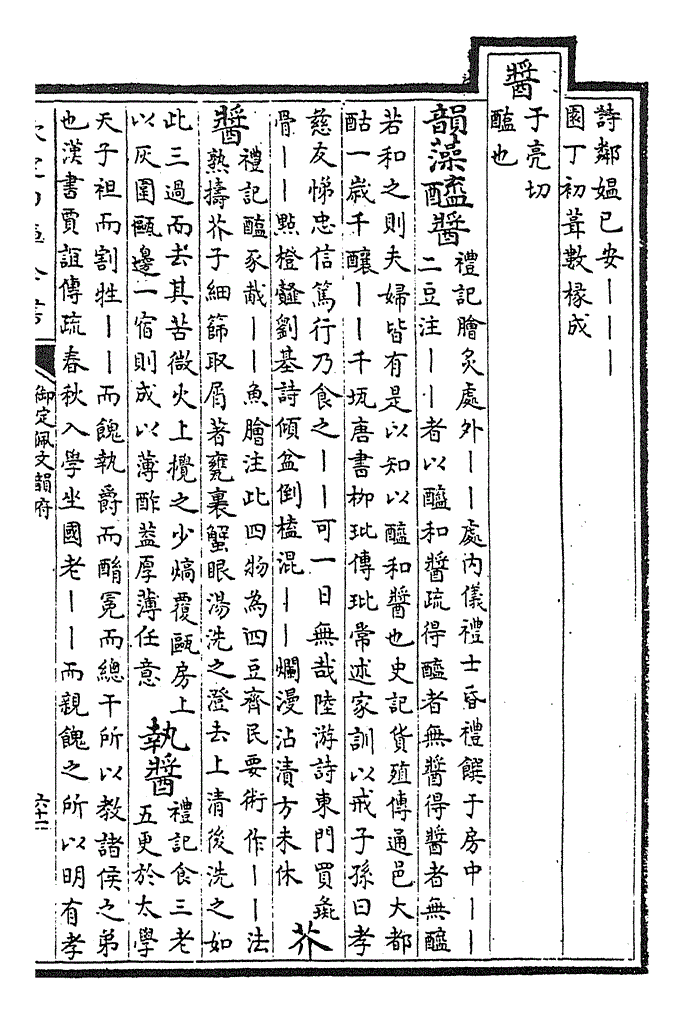 詩鄰媪已安丨丨丨
園丁初葺數椽成
醬
于亮切
醢也
韻藻醯醬
禮記膾炙處外丨丨處内儀禮士昏禮饌于房中丨丨
二豆注丨丨者以醯和醬疏得醯者無醬得醬者無醯
若和之則夫婦皆有是以知以醯和醬也史記貨殖傳通邑大都
酤一歳千釀丨丨千瓨唐書栁玭傳玭常述家訓以戒子孫曰孝
慈友悌忠信篤行乃食之丨丨可一日無哉陸游詩東門買彘
骨丨丨㸃橙薤劉基詩傾盆倒榼混丨丨爛漫沾漬方未休
芥
醬
禮記醢豕胾丨丨魚膾注此四物為四豆齊民要術作丨丨法
熟擣芥子細篩取屑著甕裏蟹眼湯洗之澄去上清後洗之如
此三過而去其苦微火上攪之少熇覆甌房上
以灰圍甌邊一宿則成以薄酢葢厚薄任意
執醬
禮記食三老
五更於太學
天子袒而割牲丨丨而餽執爵而酳冕而總干所以教諸侯之弟
也漢書賈誼傳疏春秋入學坐國老丨丨而親餽之所以明有孝
御定佩文韻府